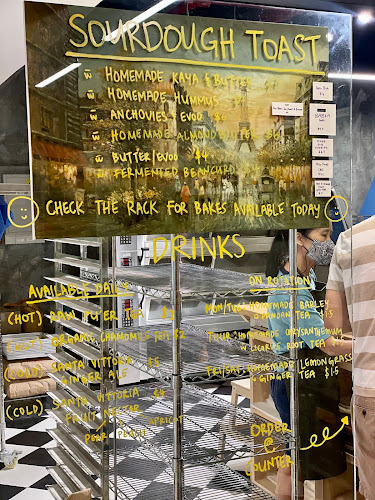 SOURDOUGH TOAST
HOMEMADE KAYA & BUTTER
HOMEMADE HUMMUS
ANCHOVIES & EVOO
HOMEMADE ALMOND BUTTER $6
BUTTER/EVOO $4
FERMENTED BEANCURD
CHECK THE RACK FOR BAKES AVAILABLE TODAY
DRINKS
AVAILABLE DAILY
(HOT) RAW PU'ER TEA
ORGANIC CHAMOMILE TEA $2
(COLD) SANTA VITTORIA $5
GINGER ALE
(COLD) SANTA VITTORIA
FRUIT NECTAR
PEAR PEACH APRICOT
ON ROTATION
MON/TUE: HOMEMADE BARLEY
& PANDAN TEA $1.5
HOMEMADE CHRYSANTHEMUM
W LICORICE ROOT TEA $1.5
HOMEMADE LEMONGRASS
& GINGER TEA $1.5
ORDER
@
COUNTER